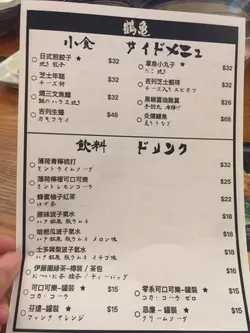 鶴亀
小食 サイドメニュー
日式煎餃子 ★ $32
焼き餃子
章魚小丸子 ★ $32
たこ焼き
芝士年糕 $32
チーズ餅
吉列芝士蝦球 $32
チーズ入りエビカツ
燒三文魚腩 $32
鮭のハラス焼き
黑椒醬油雞翼 $32
吉列生蠔 $32
カキフライ
炙燒鱆魚 $32
飲料 ドリンク
薄荷青檸梳打 $32
ミントライムソーダ
薄荷檸檬可口可樂 $32
ミントレモンコーラ
蜂蜜柚子紅茶 $32
ゆず茶
原味波子氣水 $32
哈密瓜波子氣水 $32
メロン味
士多啤梨波子氣水 $32
イチゴ味
伊藤園綠茶-樽裝 / 茶包 $18
ティーバッグ
可口可樂-罐裝 ★ $15
コカ・コーラ
零系可口可樂-罐裝 ★ $15
コカ・コーラ ゼロ
芬達-罐裝 $15
ファンタ オレンジ
忌廉-罐裝 ★ $15
クリームソーダ